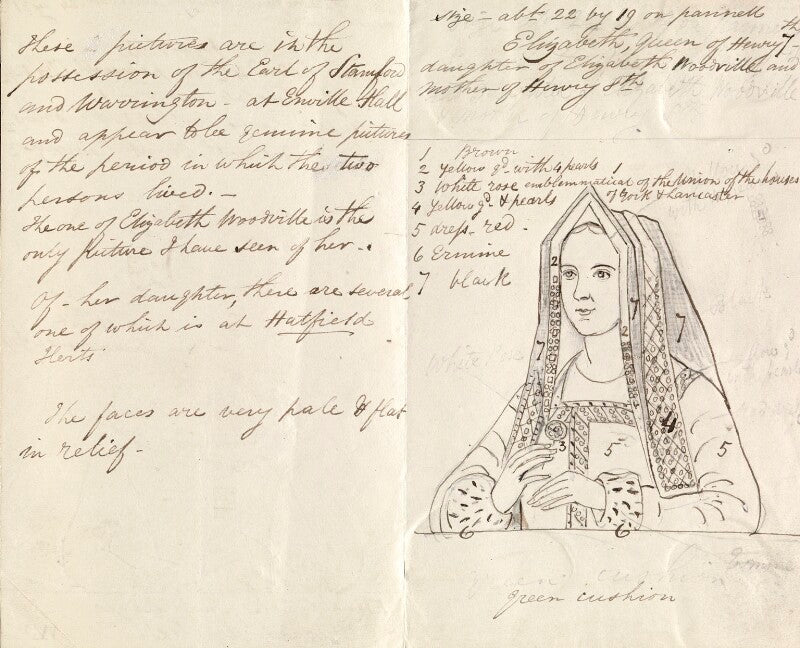 These pictures are in the
possession of the Earl of Stamford
and Warrington - at Enville Hall
and appear to be genuine pictures
of the period in which the two
persons lived. -
The one of Elizabeth Woodville is the
only picture I have seen of her -.
Of - her daughter, there are several,
one of which is at Hatfield
Herts
The faces are very pale & flat
in relief -
Size - abt. 22 by 19 on pannell
Elizabeth, Queen of Henry 7 -
daughter of Elizabeth Woodville and
mother of Henry 8th
1 Brown
2 Yellow gd. with 4 pearls
3 White rose emblemmatical of the Union of the houses
of York & Lancaster
4 Yellow gd. & pearls
5 dress - red -
6 Ermine
7 black
1
2
7
7
7
2
3
4
5
5
6
6
White Rose
Ermine
green cushion
green cushion